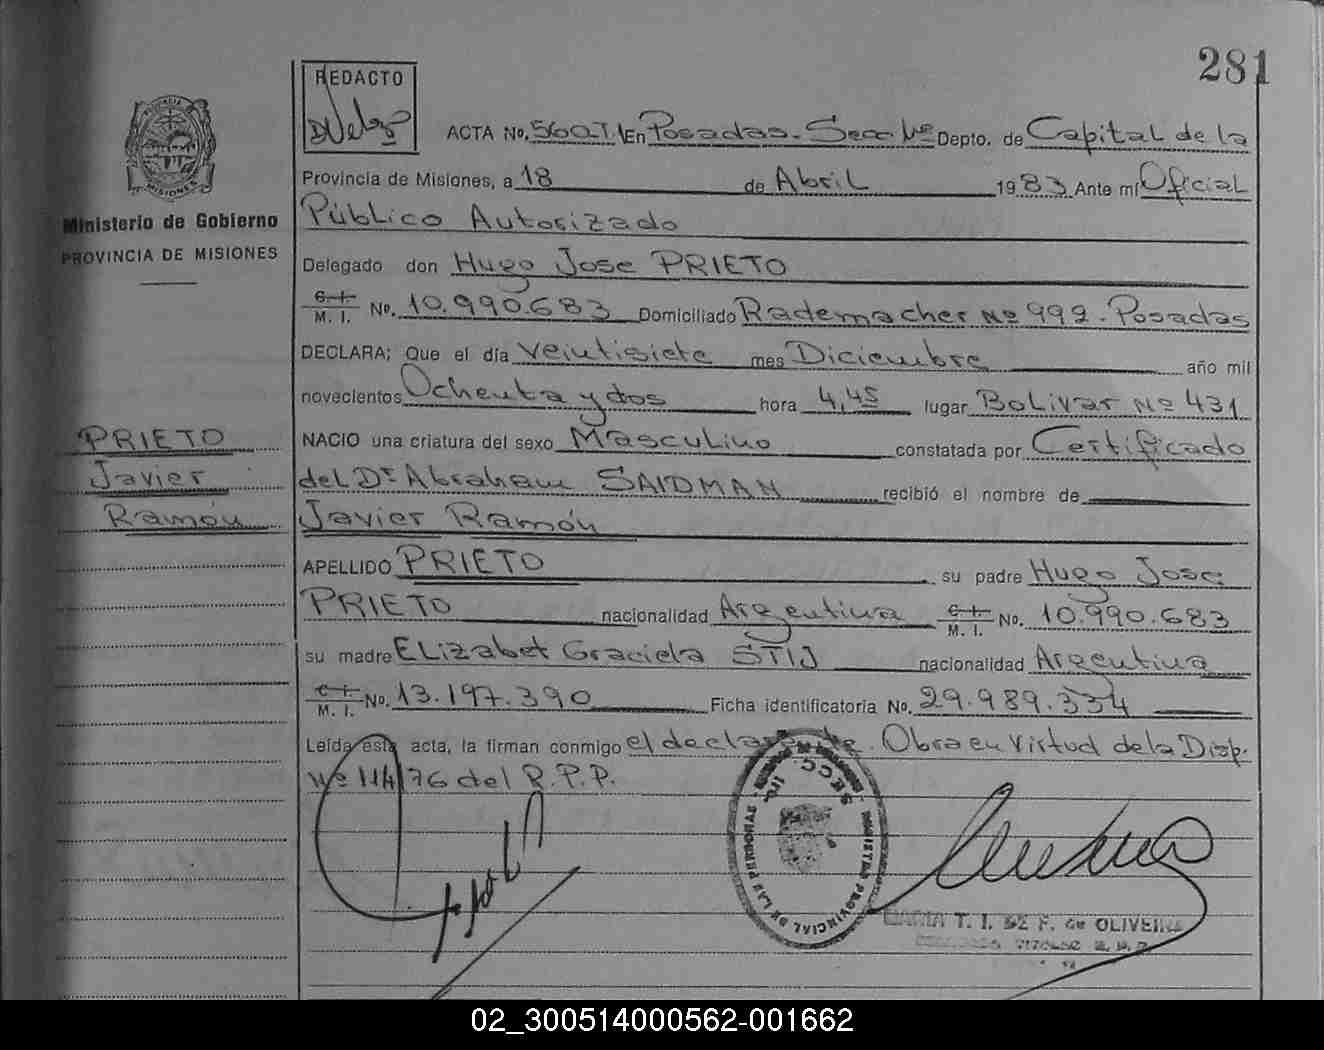 281
REDACTO
DVelazo
ACTA No. 560 T. I En Posadas - Secc. 1ra Depto. de Capital de la
Provincia de Misiones, a 18 de Abril 1983 Ante mí Oficial
Público Autorizado
Delegado don Hugo Jose PRIETO
C. I. M. I. No. 10.990.683 Domiciliado Rademacher Nº 992 - Posadas
DECLARA; Que el día veintisiete mes Diciembre año mil
novecientos Ochenta y dos hora 4,45 lugar Bolivar Nº 431
NACIO una criatura del sexo Masculino constatada por Certificado
del Dr Abraham SAIDMAN recibió el nombre de
Javier Ramón
APELLIDO PRIETO su padre Hugo Jose
PRIETO nacionalidad Argentina C. I. M. I. No. 10.990.683
su madre Elizabet Graciela STIJ nacionalidad Argentina
C. I. M. I. No. 13.197.390 Ficha identificatoria No. 29.989.334
Leída esta acta, la firman conmigo el declarante. Obra en Virtud de la Disp.
Nº 114/76 del R.P.P.
Ministerio de Gobierno
PROVINCIA DE MISIONES
PRIETO
Javier
Ramón
REGISTRO PROVINCIAL DE LAS PERSONAS
SECC. 1ra.
MARIA T. I. DE F. de OLIVEIRA
02_300514000562-001662